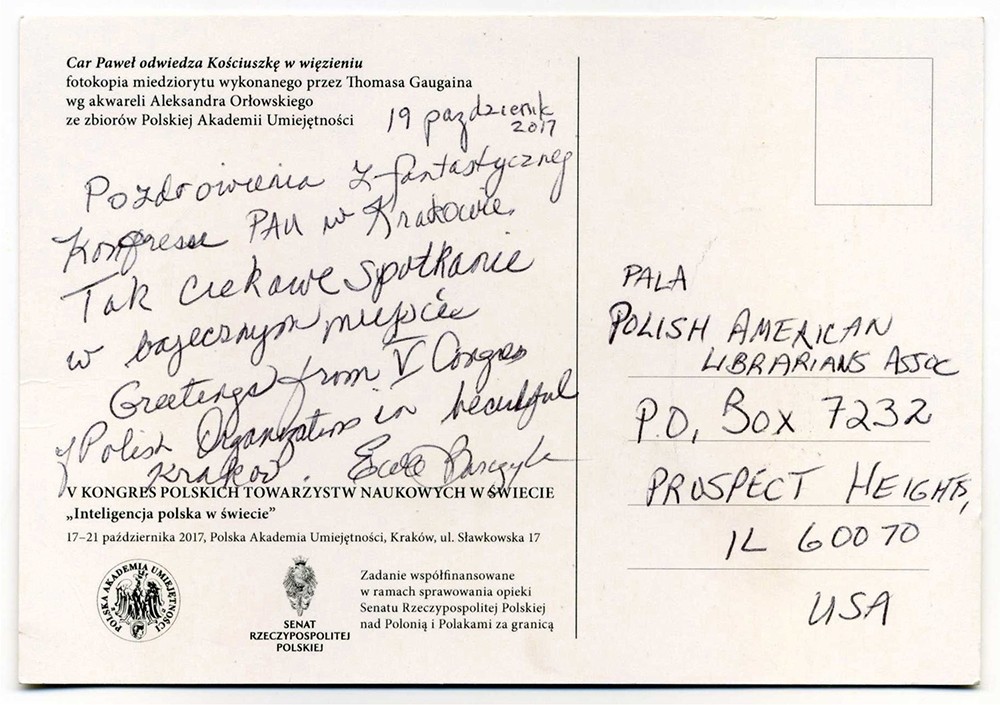 Car Paweł odwiedza Kościuszkę w więzieniu
fotokopia miedziorytu wykonanego przez Thomasa Gaugaina
wg akwareli Aleksandra Orłowskiego
ze zbiorów Polskiej Akademii Umiejętności
19 pazdziernik
2017
Pozdrowienia z fantastycznego
Kongresu PAU w Krakowie.
Tak ciekawe spotkanie
w bajecznym miejscu
Greetings from V Congres
of Polish Organizations in beautiful
Krakow. Ewa Barczyk
V KONGRES POLSKICH TOWARZYSTW NAUKOWYCH W ŚWIECIE
„Inteligencja polska w świecie”
17–21 października 2017, Polska Akademia Umiejętności, Kraków, ul. Sławkowska 17
POLSKA AKADEMIA UMIEJĘTNOŚCI
SENAT
RZECZYPOSPOLITEJ
POLSKIEJ
Zadanie współfinansowane
w ramach sprawowania opieki
Senatu Rzeczypospolitej Polskiej
nad Polonią i Polakami za granicą
PALA
POLISH AMERICAN
LIBRARIANS ASSOC
P.O. BOX 7232
PROSPECT HEIGHTS,
IL 60070
USA